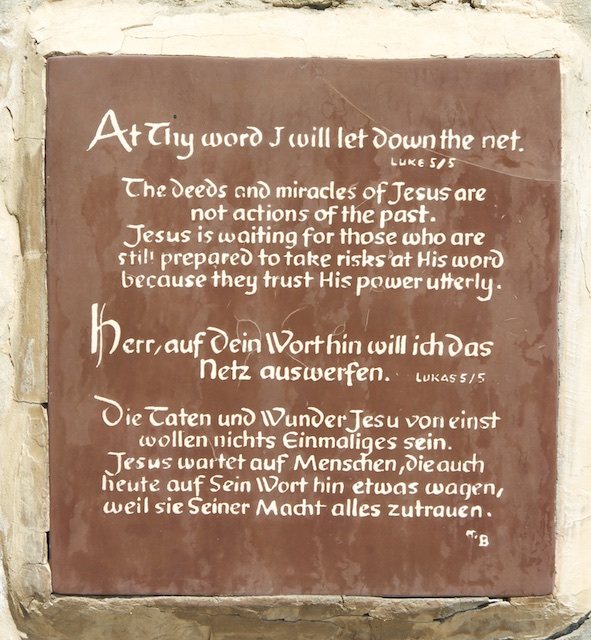 At Thy word I will let down the net.
LUKE 5/5
The deeds and miracles of Jesus are
not actions of the past.
Jesus is waiting for those who are
still prepared to take risks at His word
because they trust His power utterly.
Herr, auf Dein Wort hin will ich das
Netz auswerfen. LUKAS 5/5
Die Taten und Wunder Jesu von einst
wollen nichts Einmaliges sein.
Jesus wartet auf Menschen, die auch
heute auf Sein Wort hin etwas wagen,
weil sie Seiner Macht alles zutrauen.